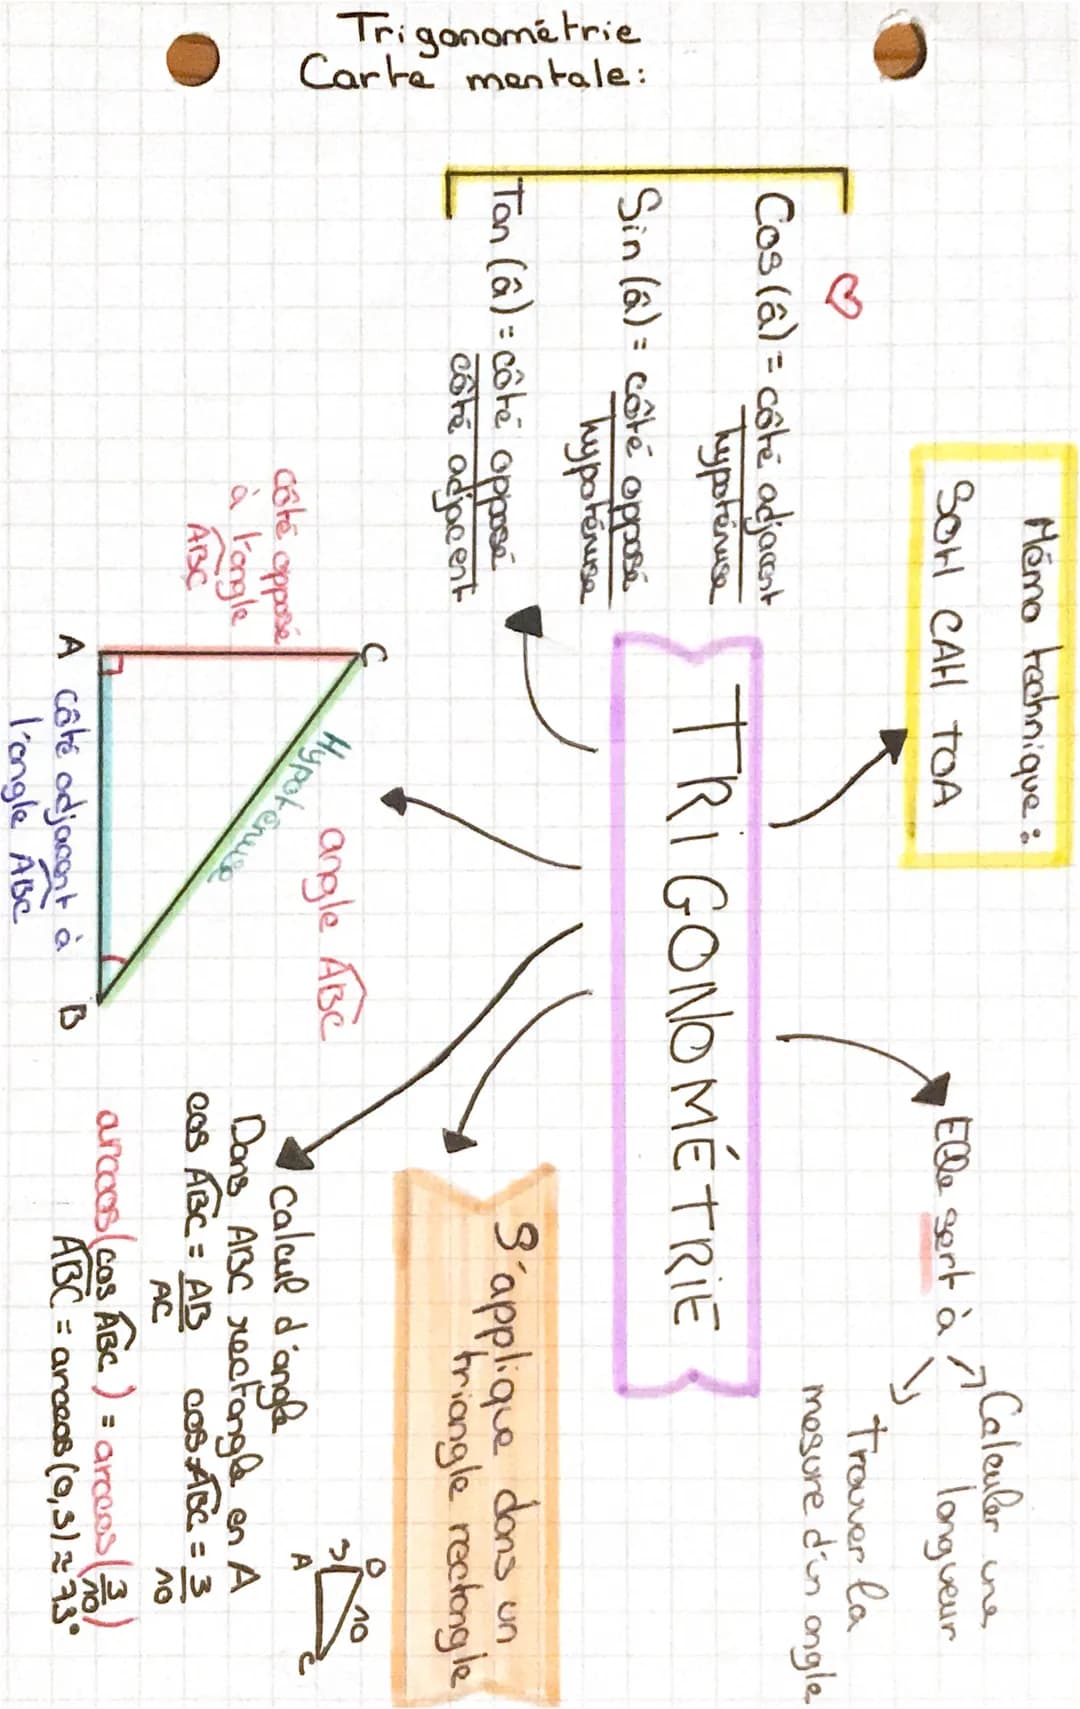 Trigonométrie
Carte mentale:
Mémo technique:
SOH CAH TOA
Cos (â) = côté adjacent
hypoténuse
Sin (â) = côté opposé
hypoténuse
Tan (â) = côté opposé
côté adjacent
TRIGONOMÉTRIE
Elle sert à
Calculer une
longueur
Trouver la
mesure d'un angle
S'applique dans un
triangle rectangle
côté opposé
à l'angle
ABC
C
Hypoténuse
angle ABC
A
B
côté adjacent à
l'angle ABC
Calcul d'angle
Dans ABC rectangle en A
cos ABC = AB
AC
cos ABC = 3
10
arccos(cos ABC) = arccos(3
10)
ABC = arccos(0,3) ≈ 73°
B
3
10
A
C